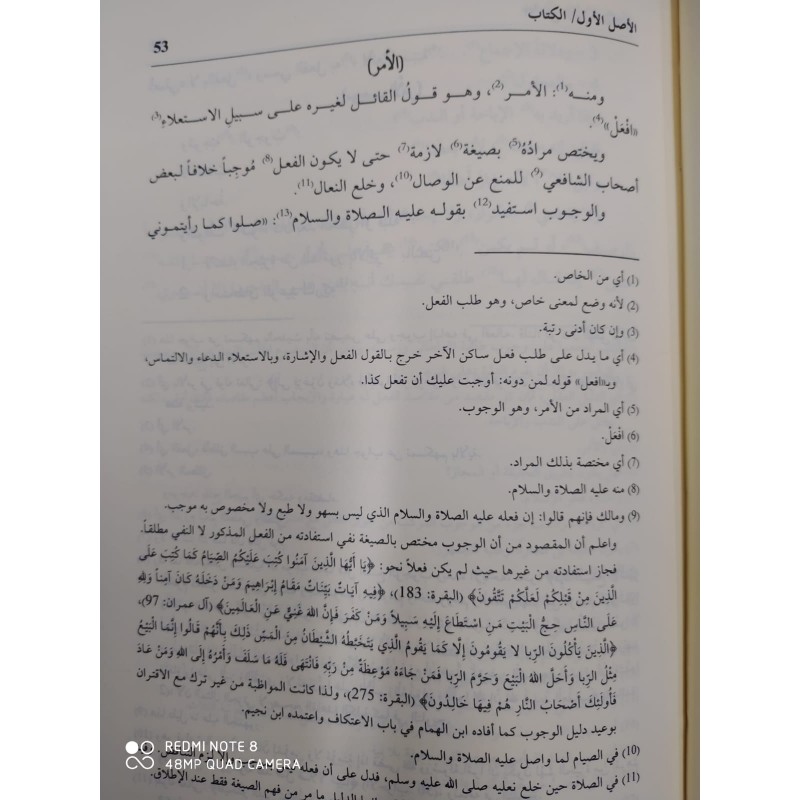 الأصل الأول/ الكتاب
53
(الأمر)
ومنه(1): الأمر(2)، وهو قولُ القائل لغيره على سبيلِ الاستعلاءِ(3)
«افْعَلْ»(4).
ويختص مرادُهُ(5) بصيغة(6) لازمة(7) حتى لا يكون الفعل(8) مُوجِباً خلافاً لبعض
أصحاب الشافعي(9) للمنع عن الوصال(10)، وخلع النعال(11).
والوجوب استفيد(12) بقوله عليه الصلاة والسلام(13): «صلوا كما رأيتموني
(1) أي من الخاص.
(2) لأنه وضع لمعنى خاص، وهو طلب الفعل.
(3) وإن كان أدنى رتبة.
(4) أي ما يدل على طلب فعل ساكن الآخر خرج بالقول الفعل والإشارة، وبالاستعلاء الدعاء والالتماس،
وبـ«افعل» قوله لمن دونه: أوجبت عليك أن تفعل كذا.
(5) أي المراد من الأمر، وهو الوجوب.
(6) افْعَلْ.
(7) أي مختصة بذلك المراد.
(8) منه عليه الصلاة والسلام.
(9) ومالك فإنهم قالوا: إن فعله عليه الصلاة والسلام الذي ليس بسهو ولا طبع ولا مخصوص به موجب.
واعلم أن المقصود من أن الوجوب مختص بالصيغة نفي استفادته من الفعل المذكور لا النفي مطلقاً.
فجاز استفادته من غيرها حيث لم يكن فعلاً نحو: ﴿يَا أَيُّهَا الَّذِينَ آمَنُوا كُتِبَ عَلَيْكُمُ الصِّيَامُ كَمَا كُتِبَ عَلَى
الَّذِينَ مِنْ قَبْلِكُمْ لَعَلَّكُمْ تَتَّقُونَ﴾ (البقرة: 183)، ﴿فِيهِ آيَاتٌ بَيِّنَاتٌ مَقَامُ إِبْرَاهِيمَ وَمَنْ دَخَلَهُ كَانَ آمِناً وَلِلهِ
عَلَى النَّاسِ حِجُّ الْبَيْتِ مَنِ اسْتَطَاعَ إِلَيْهِ سَبِيلاً وَمَنْ كَفَرَ فَإِنَّ اللهَ غَنِيٌّ عَنِ الْعَالَمِينَ﴾ (آل عمران: 97)،
﴿الَّذِينَ يَأْكُلُونَ الرِّبا لا يَقُومُونَ إِلَّا كَمَا يَقُومُ الَّذِي يَتَخَبَّطُهُ الشَّيْطَانُ مِنَ الْمَسِّ ذَلِكَ بِأَنَّهُمْ قَالُوا إِنَّمَا الْبَيْعُ
مِثْلُ الرِّبا وَأَحَلَّ اللهُ الْبَيْعَ وَحَرَّمَ الرِّبا فَمَنْ جَاءَهُ مَوْعِظَةٌ مِنْ رَبِّهِ فَانْتَهَى فَلَهُ مَا سَلَفَ وَأَمْرُهُ إِلَى اللهِ وَمَنْ عَادَ
فَأُولَئِكَ أَصْحَابُ النَّارِ هُمْ فِيهَا خَالِدُونَ﴾ (البقرة: 275)، ولذا كانت المواظبة من غير ترك مع الاقتران
بوعيد دليل الوجوب كما أفاده ابن الهمام في باب الاعتكاف واعتمده ابن نجيم.
(10) في الصيام لما واصل عليه الصلاة والسلام.
(11) في الصلاة حين خلع نعليه صلى الله عليه وسلم، فدل على أن فعله ليس
ما مر من فهم الصيغة فقط عند الإطلاق.
REDMI NOTE 8
48MP QUAD CAMERA